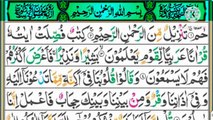 بِسْمِ اللّٰهِ الرَّحْمٰنِ الرَّحِيْمِ
حٰمٓ تَنْزِيْلٌ مِّنَ الرَّحْمٰنِ الرَّحِيْمِ كِتٰبٌ فُصِّلَتْ اٰيٰتُهٗ
قُرْاٰنًا عَرَبِيًّا لِّقَوْمٍ يَّعْلَمُوْنَ بَشِيْرًا وَّنَذِيْرًا فَاَعْرَضَ اَكْثَرُهُمْ
فَهُمْ لَا يَسْمَعُوْنَ وَقَالُوْا قُلُوْبُنَا فِيْٓ اَكِنَّةٍ مِّمَّا تَدْعُوْنَآ اِلَيْهِ
وَفِيْٓ اٰذَانِنَا وَقْرٌ وَّمِنْۢ بَيْنِنَا وَبَيْنِكَ حِجَابٌ فَاعْمَلْ اِنَّنَا